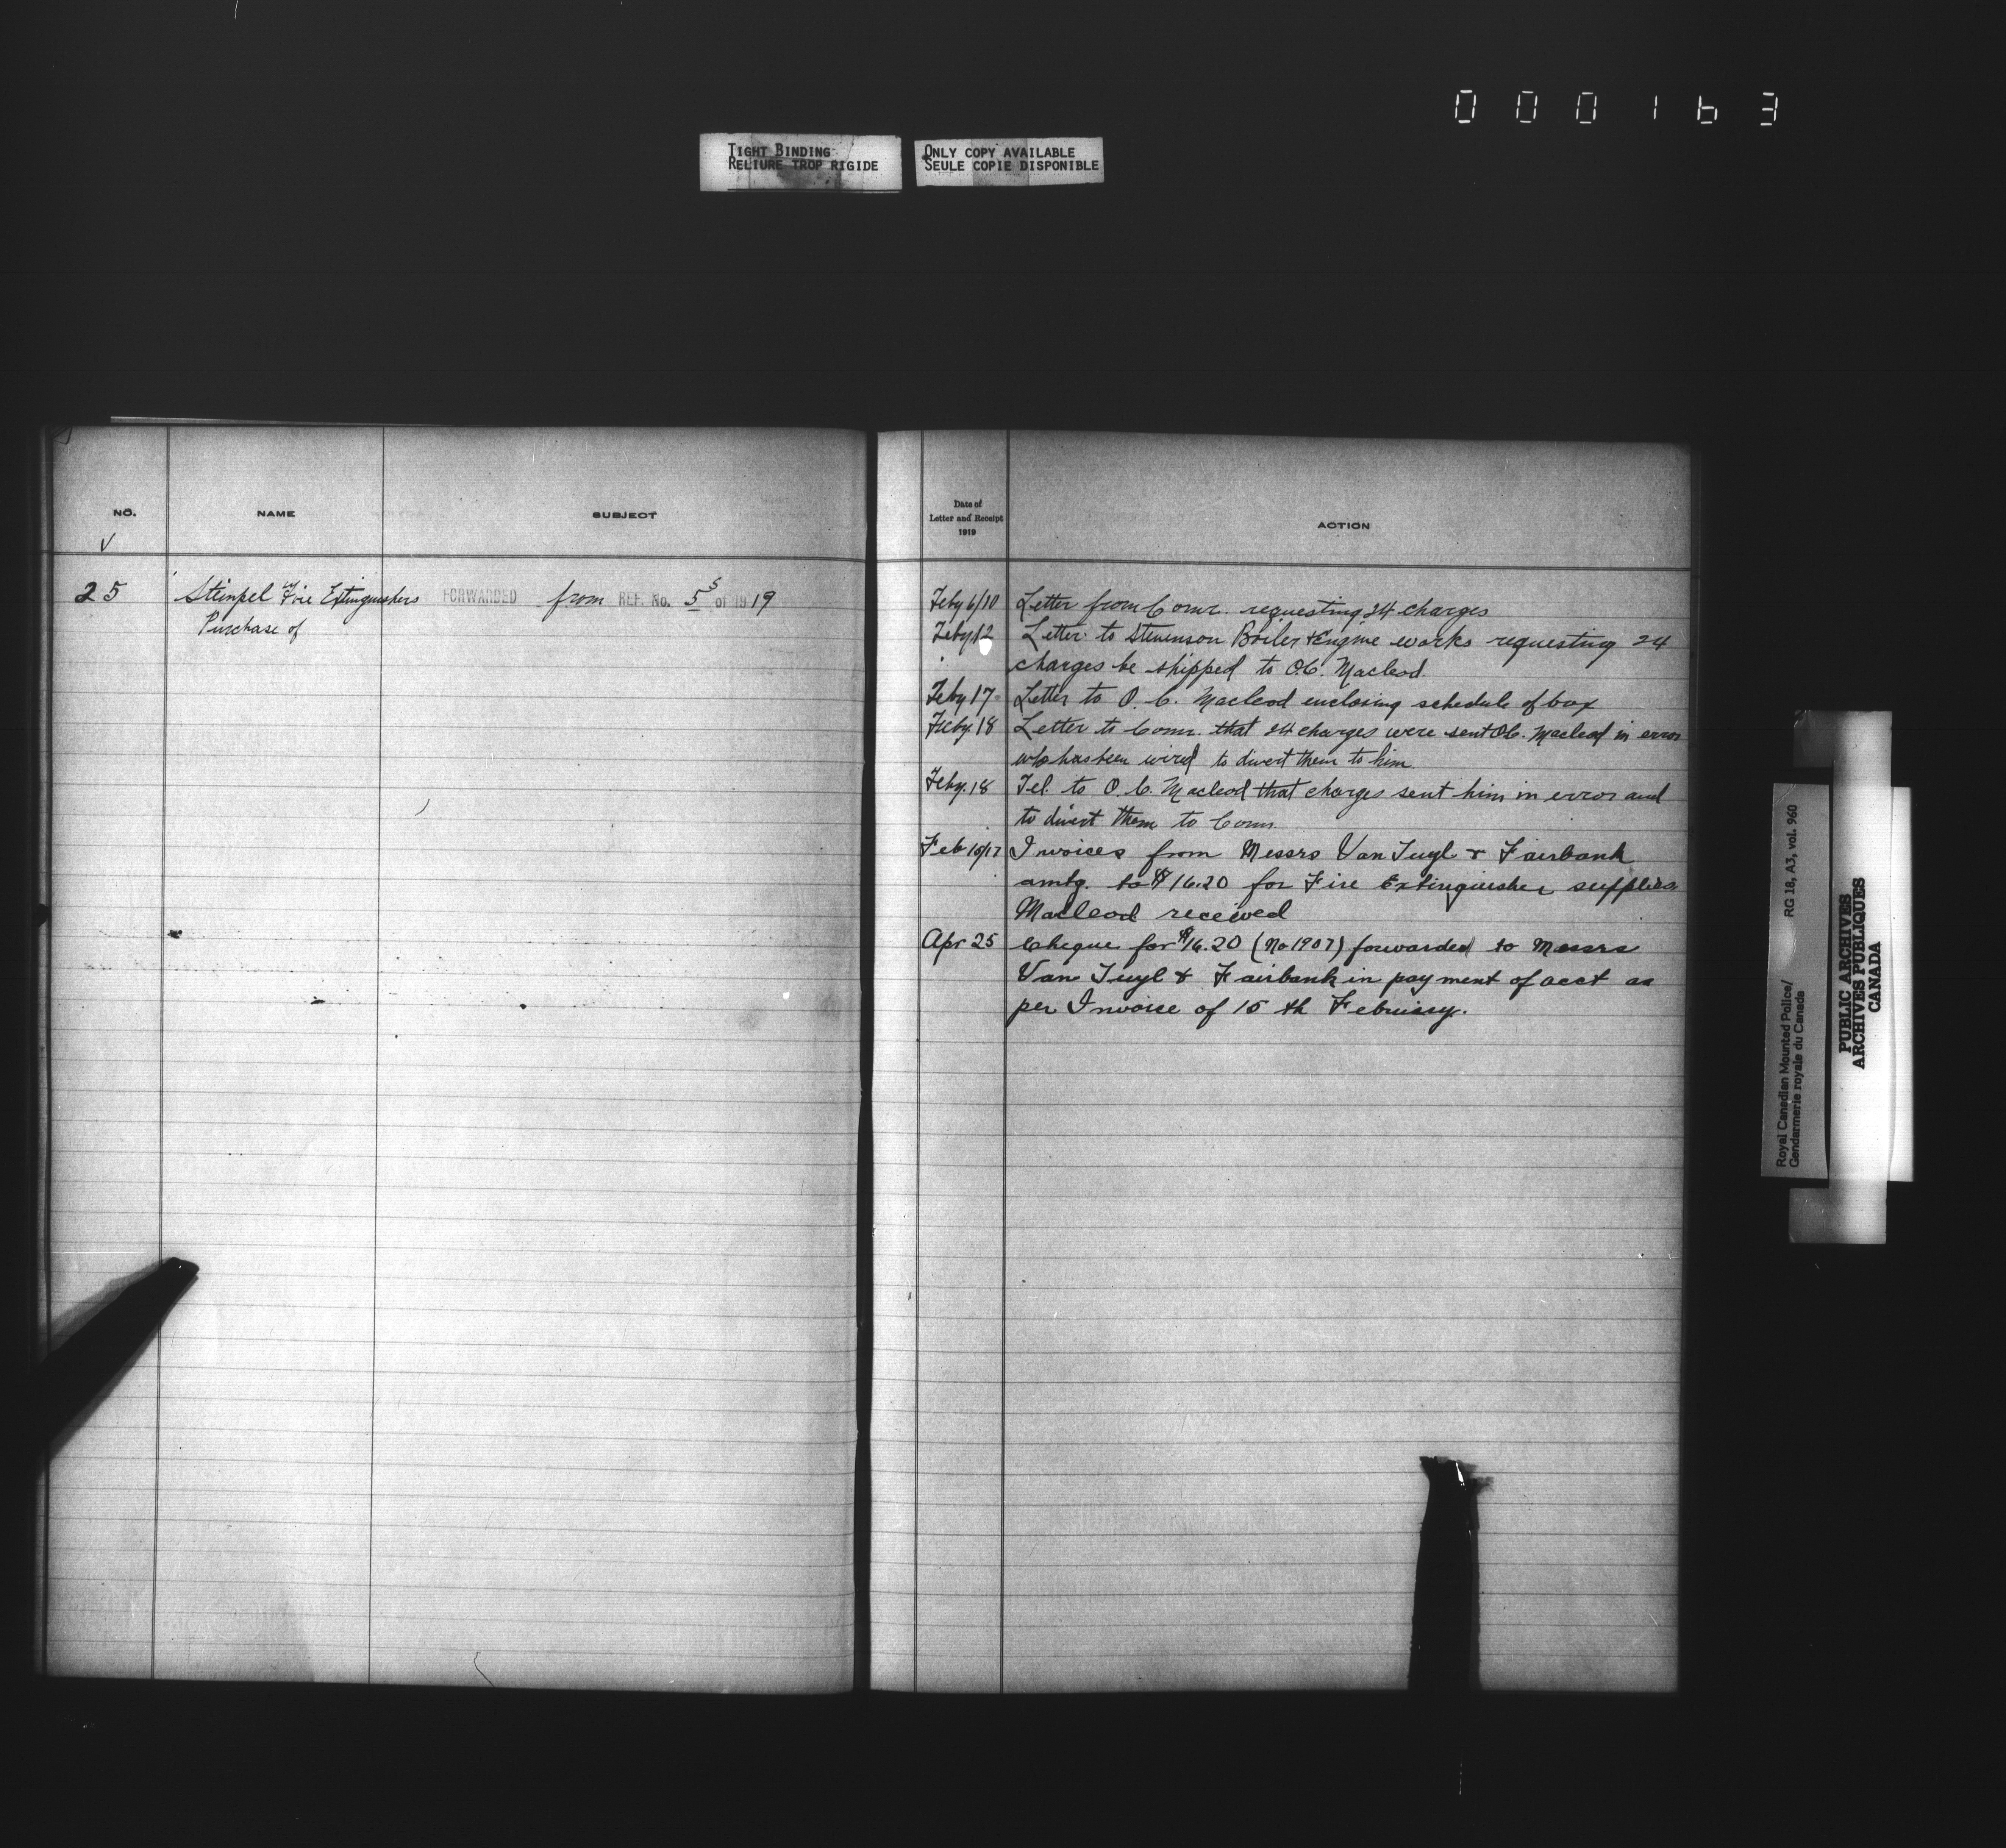 000163
TIGHT BINDING
RELIURE TROP RIGIDE
ONLY COPY AVAILABLE
SEULE COPIE DISPONIBLE
NO.
NAME
SUBJECT
25
Stempel Fire Extinguishers FORWARDED from REF. No. 5 5 of 1919
Purchase of
Date of
Letter and Receipt
1919
ACTION
Feby 6/10 Letter from Comr. requesting 24 charges
Feby 12 Letter to Stevenson Boiler & Engine works requesting 24
charges be shipped to O.C. Macleod.
Feby 17 Letter to O. C. Macleod enclosing schedule of box
Feby. 18 Letter to Comr. that 24 charges were sent O.C. Macleod in error
who has been wired to divert them to him.
Feby. 18 Tel. to O. C. Macleod that charges sent him in error and
to divert them to Comr.
Feb 15/17 Invoices from Messrs Van Tuyl & Fairbank
amtg. to $16.20 for Fire Extinguisher supplies
Macleod received
Apr 25 Cheque for $16.20 (No 1907) forwarded to Messrs
Van Tuyl & Fairbank in payment of acct as
per Invoice of 15 th Februrary.
Royal Canadian Mounted Police/
Gendarmerie royale du Canada
RG 18, A3, vol. 960
PUBLIC ARCHIVES
ARCHIVES PUBLIQUES
CANADA